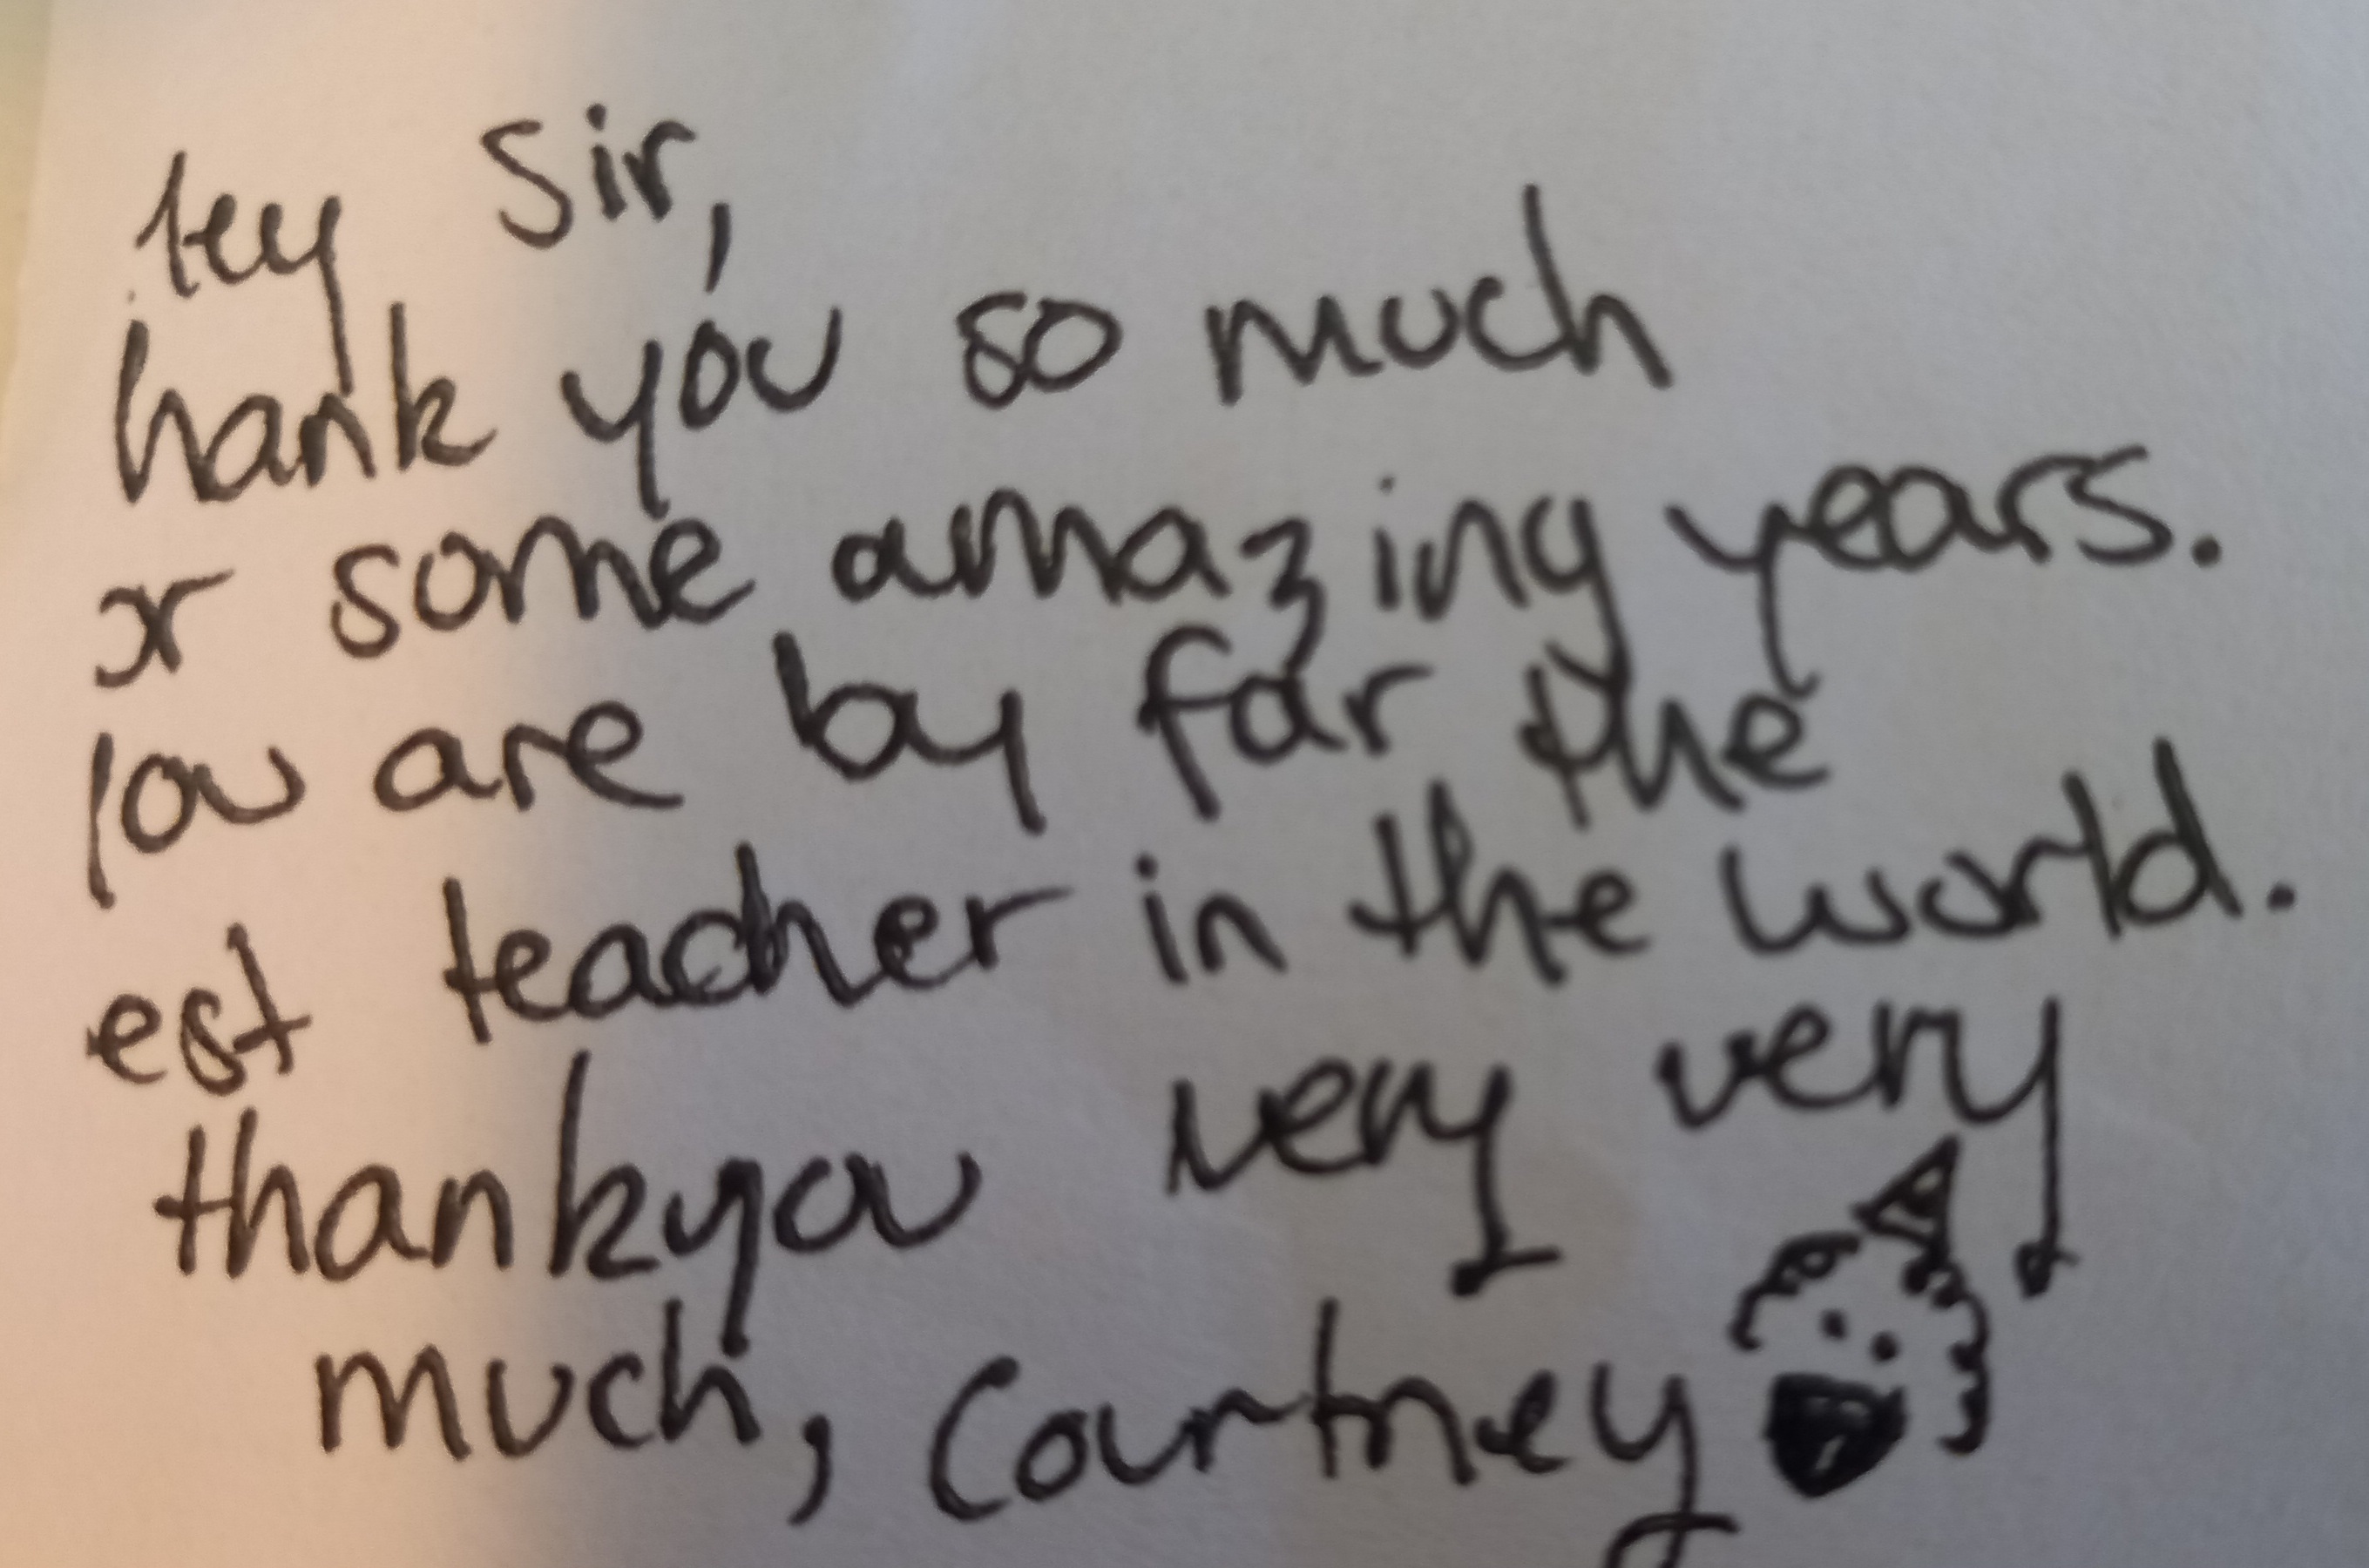 Hey Sir,
hank you so much
or some amazing years.
You are by far the
est teacher in the world.
thankyou very very
much, Courtney